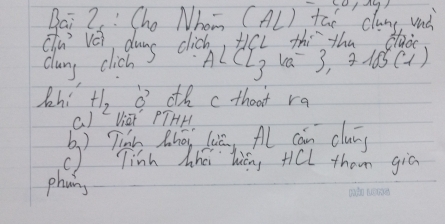 Bài 2 : Cho Nhôm (AL) tác dụng vừa
đủ với dung dịch HCL thì thu được
dung dịch ALCL3 và 3,7185 (l)
khí H2 ở đk c thoát ra
a) Viết PTHH
b) Tính khối lượng AL cần dùng
c) Tính khối lượng HCL tham gia
phứng